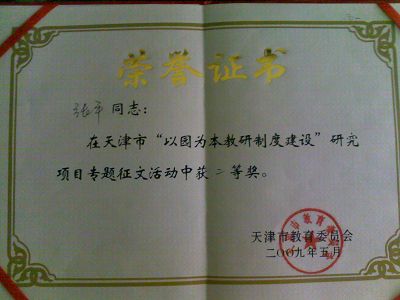 荣誉证书
张平 同志：
在天津市“以园为本教研制度建设”研究
项目专题征文活动中获 二 等奖。
天津市教育委员会
二〇〇九年五月